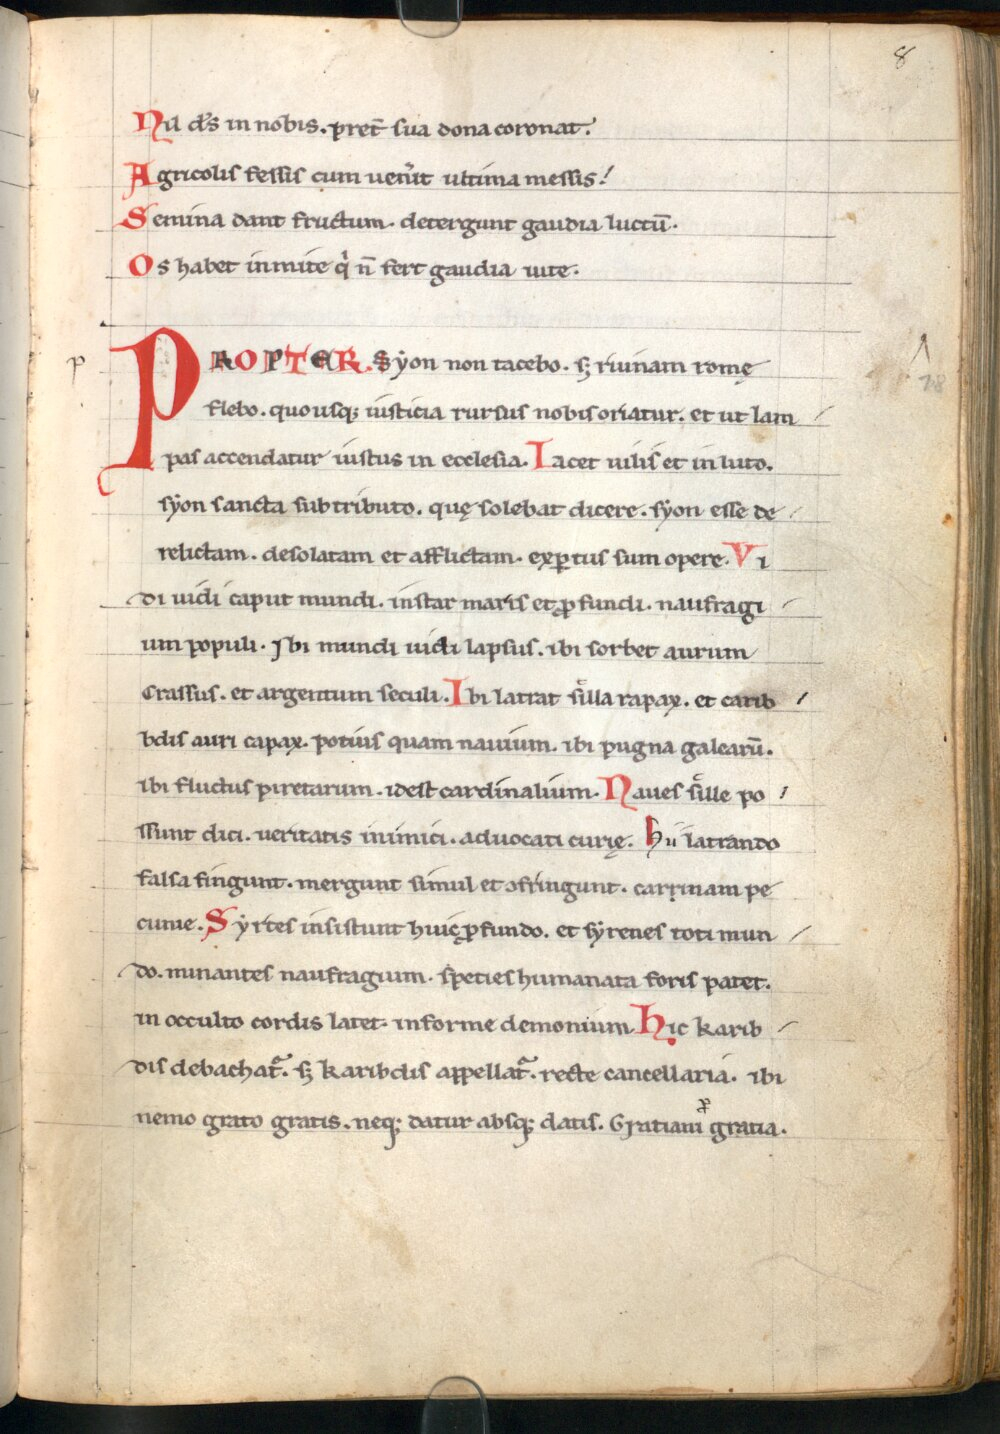 8
Nil d̄s in nobis. pret̄ sua dona coronat.
Agricolis fessis cum uen̾it ultima messis!
Semina dant fructum. detergunt gaudia luctū.
Os habet inmite q̇ n̄ fert gaudia uite.
p PROPTER. Syon non tacebo. sꝫ riuinam romę
flebo. quousqꝫ iusticia rursus nobis oriatur. et ut lam
pas accendatur iustus in ecclesia. Iacet uilis et in luto.
syon sancta sub tributo. quę solebat dicere. syon esse de
relictam. desolatam et afflictam. exꝑtus sum opere. Vi
di uidi caput mundi. instar maris et ꝓfundi. naufragi
um populi. Ibi mundi uidi lapsus. ibi sorbet aurum
Crassus. et argentum seculi. Ibi latrat silla rapax. et carib
bdis auri capax. potius quam nauium. ibi pugna galearū.
ibi fluctus piretarum. idest cardinalium. Naues sille po
ssunt dici. ueritatis inimici. aduocati curię. hii latrando
falsa fingunt. mergunt simul et ɔfringunt. carrinam pe
cunie. Syrtes insistunt huic ꝓfundo. et syrenes toti mun
do. minantes naufragium. species humanata foris patet.
in occulto cordis latet. informe demonium. Hic karib
dis debachat᷑. sꝫ karibdis appellat᷑. recte cancellaria. ibi
nemo grato gratis. neqꝫ datur absqꝫ datis. Gratiani ꝓ gratia.